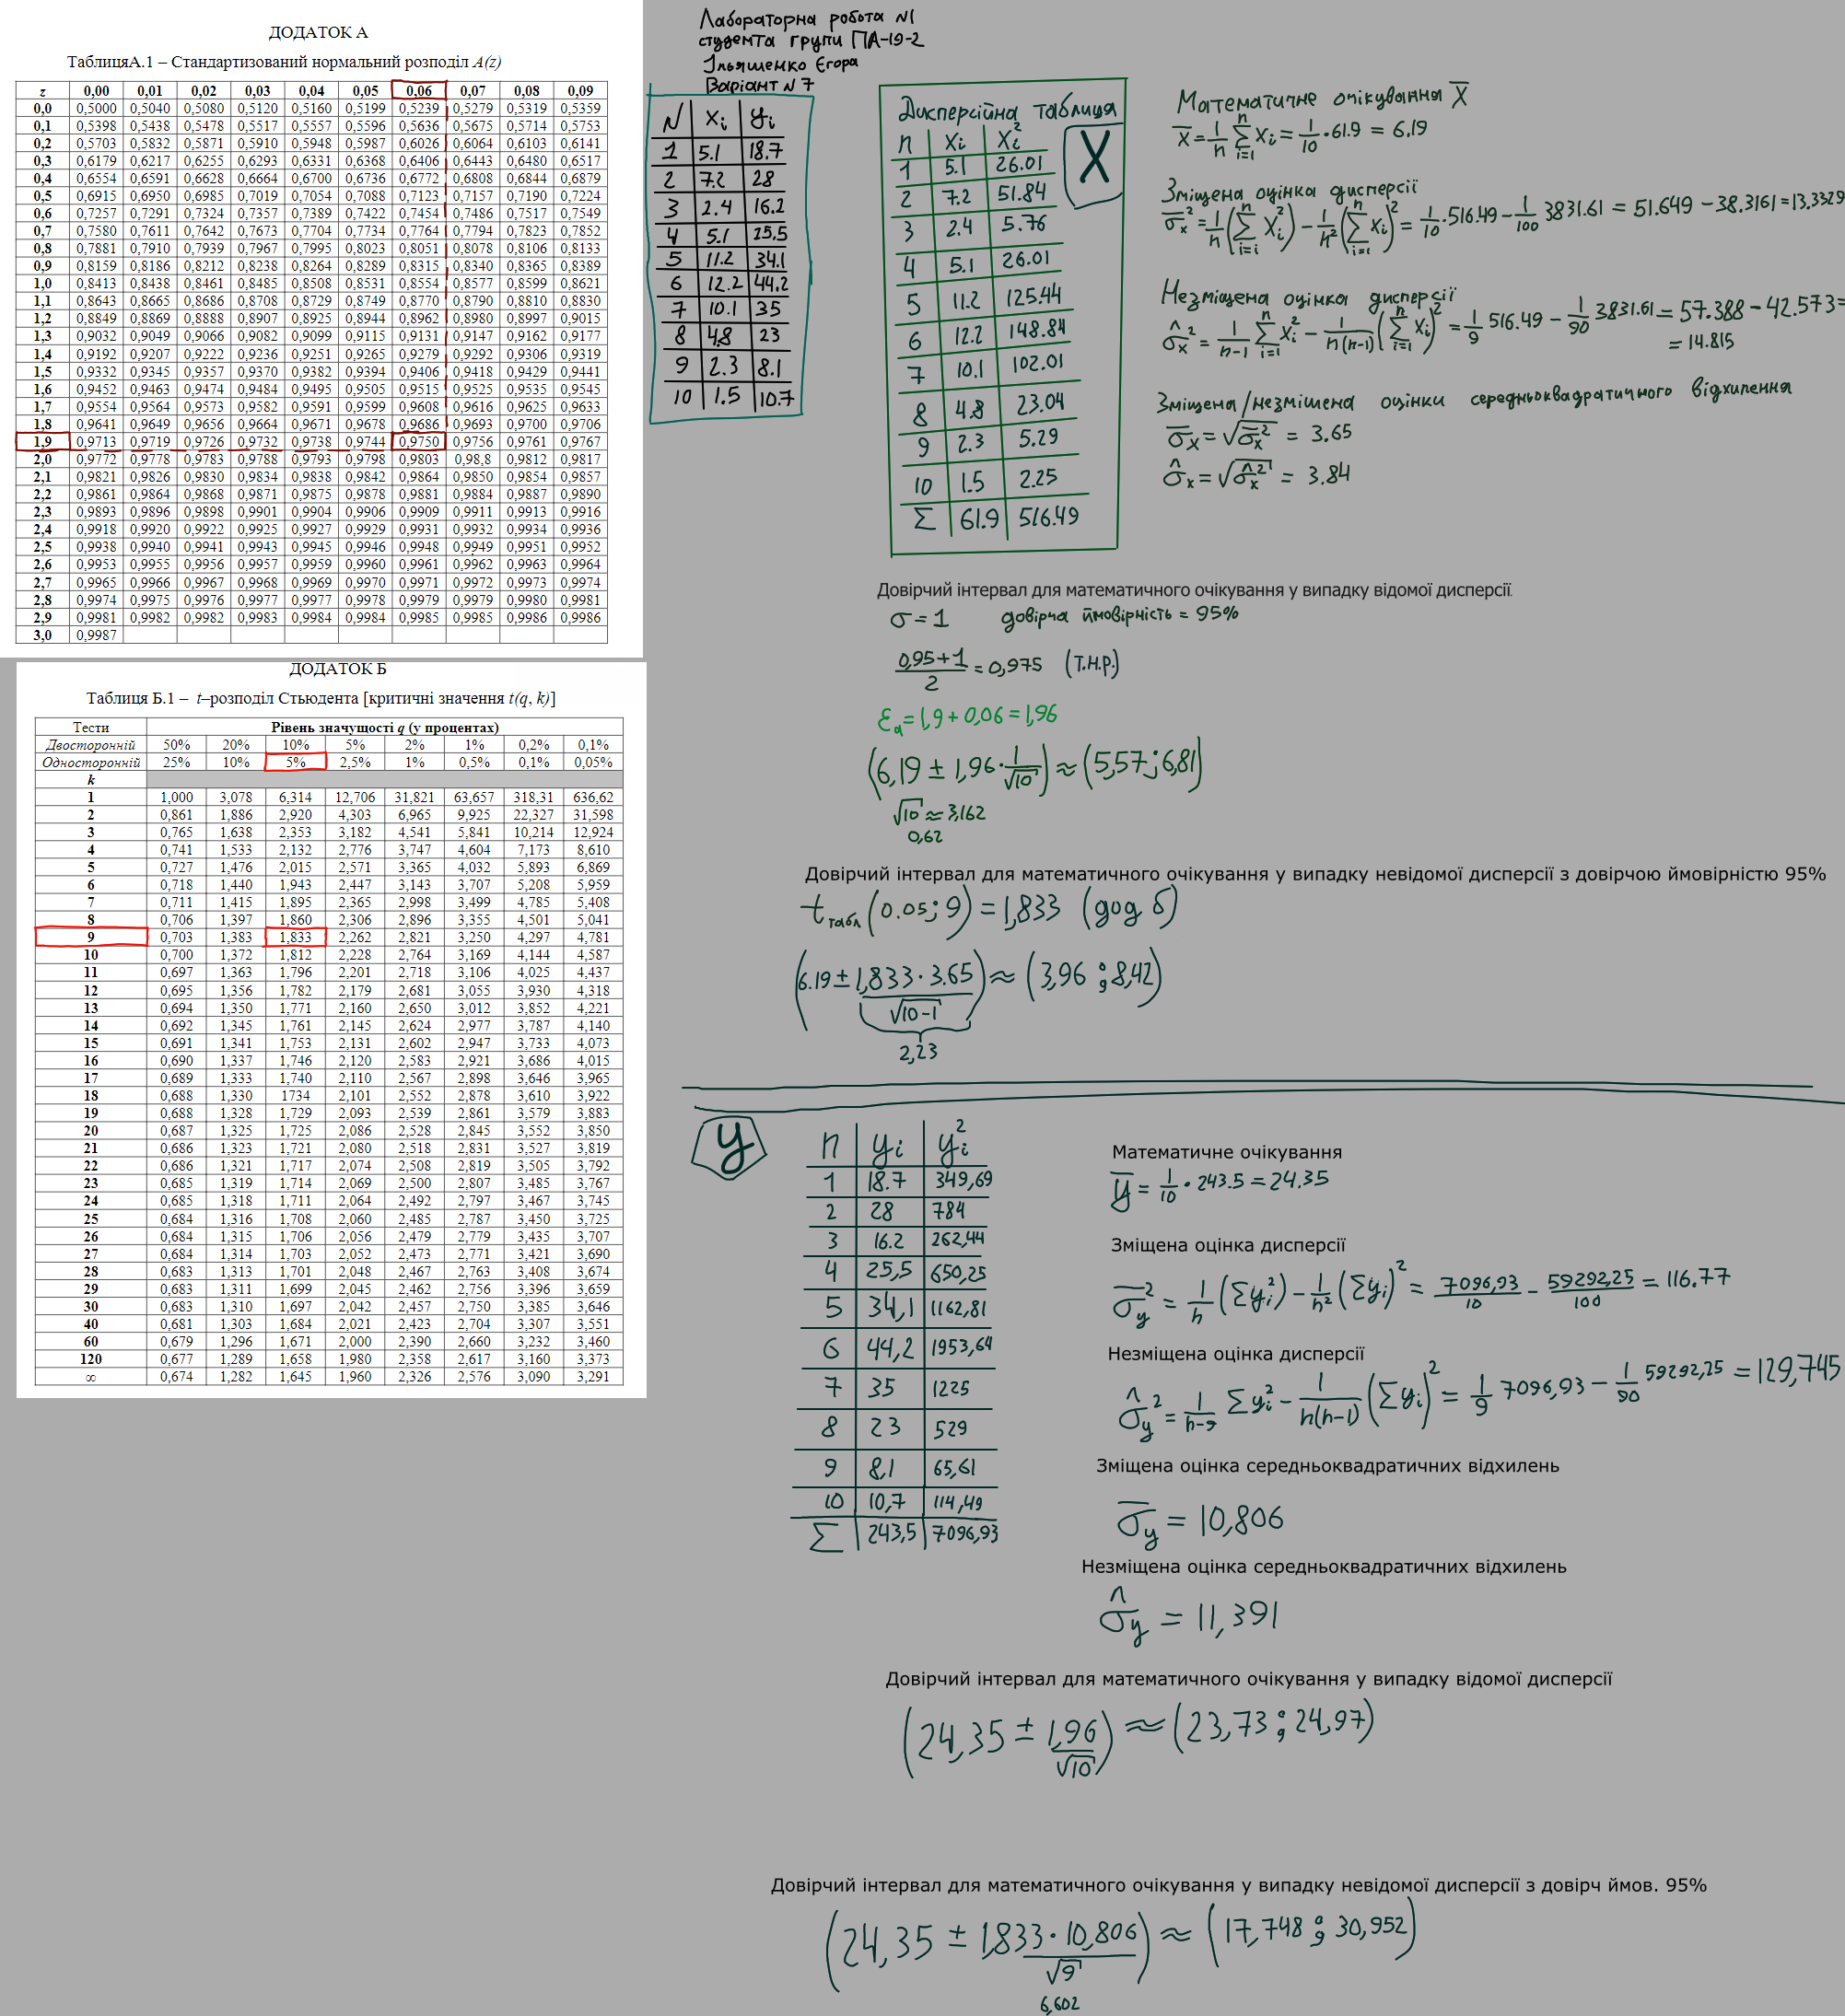 ДОДАТОК А
ТаблицяА.1 – Стандартизований нормальний розподіл A(z)
z 0,00 0,01 0,02 0,03 0,04 0,05 0,06 0,07 0,08 0,09
0,0 0,5000 0,5040 0,5080 0,5120 0,5160 0,5199 0,5239 0,5279 0,5319 0,5359
0,1 0,5398 0,5438 0,5478 0,5517 0,5557 0,5596 0,5636 0,5675 0,5714 0,5753
0,2 0,5703 0,5832 0,5871 0,5910 0,5948 0,5987 0,6026 0,6064 0,6103 0,6141
0,3 0,6179 0,6217 0,6255 0,6293 0,6331 0,6368 0,6406 0,6443 0,6480 0,6517
0,4 0,6554 0,6591 0,6628 0,6664 0,6700 0,6736 0,6772 0,6808 0,6844 0,6879
0,5 0,6915 0,6950 0,6985 0,7019 0,7054 0,7088 0,7123 0,7157 0,7190 0,7224
0,6 0,7257 0,7291 0,7324 0,7357 0,7389 0,7422 0,7454 0,7486 0,7517 0,7549
0,7 0,7580 0,7611 0,7642 0,7673 0,7704 0,7734 0,7764 0,7794 0,7823 0,7852
0,8 0,7881 0,7910 0,7939 0,7967 0,7995 0,8023 0,8051 0,8078 0,8106 0,8133
0,9 0,8159 0,8186 0,8212 0,8238 0,8264 0,8289 0,8315 0,8340 0,8365 0,8389
1,0 0,8413 0,8438 0,8461 0,8485 0,8508 0,8531 0,8554 0,8577 0,8599 0,8621
1,1 0,8643 0,8665 0,8686 0,8708 0,8729 0,8749 0,8770 0,8790 0,8810 0,8830
1,2 0,8849 0,8869 0,8888 0,8907 0,8925 0,8944 0,8962 0,8980 0,8997 0,9015
1,3 0,9032 0,9049 0,9066 0,9082 0,9099 0,9115 0,9131 0,9147 0,9162 0,9177
1,4 0,9192 0,9207 0,9222 0,9236 0,9251 0,9265 0,9279 0,9292 0,9306 0,9319
1,5 0,9332 0,9345 0,9357 0,9370 0,9382 0,9394 0,9406 0,9418 0,9429 0,9441
1,6 0,9452 0,9463 0,9474 0,9484 0,9495 0,9505 0,9515 0,9525 0,9535 0,9545
1,7 0,9554 0,9564 0,9573 0,9582 0,9591 0,9599 0,9608 0,9616 0,9625 0,9633
1,8 0,9641 0,9649 0,9656 0,9664 0,9671 0,9678 0,9686 0,9693 0,9700 0,9706
1,9 0,9713 0,9719 0,9726 0,9732 0,9738 0,9744 0,9750 0,9756 0,9761 0,9767
2,0 0,9772 0,9778 0,9783 0,9788 0,9793 0,9798 0,9803 0,98,8 0,9812 0,9817
2,1 0,9821 0,9826 0,9830 0,9834 0,9838 0,9842 0,9864 0,9850 0,9854 0,9857
2,2 0,9861 0,9864 0,9868 0,9871 0,9875 0,9878 0,9881 0,9884 0,9887 0,9890
2,3 0,9893 0,9896 0,9898 0,9901 0,9904 0,9906 0,9909 0,9911 0,9913 0,9916
2,4 0,9918 0,9920 0,9922 0,9925 0,9927 0,9929 0,9931 0,9932 0,9934 0,9936
2,5 0,9938 0,9940 0,9941 0,9943 0,9945 0,9946 0,9948 0,9949 0,9951 0,9952
2,6 0,9953 0,9955 0,9956 0,9957 0,9959 0,9960 0,9961 0,9962 0,9963 0,9964
2,7 0,9965 0,9966 0,9967 0,9968 0,9969 0,9970 0,9971 0,9972 0,9973 0,9974
2,8 0,9974 0,9975 0,9976 0,9977 0,9977 0,9978 0,9979 0,9979 0,9980 0,9981
2,9 0,9981 0,9982 0,9982 0,9983 0,9984 0,9984 0,9985 0,9985 0,9986 0,9986
3,0 0,9987
ДОДАТОК Б
Таблиця Б.1 – t–розподіл Стьюдента [критичні значення t(q, k)]
Тести Рівень значущості q (у процентах)
Двосторонній 50% 20% 10% 5% 2% 1% 0,2% 0,1%
Односторонній 25% 10% 5% 2,5% 1% 0,5% 0,1% 0,05%
k
1 1,000 3,078 6,314 12,706 31,821 63,657 318,31 636,62
2 0,861 1,886 2,920 4,303 6,965 9,925 22,327 31,598
3 0,765 1,638 2,353 3,182 4,541 5,841 10,214 12,924
4 0,741 1,533 2,132 2,776 3,747 4,604 7,173 8,610
5 0,727 1,476 2,015 2,571 3,365 4,032 5,893 6,869
6 0,718 1,440 1,943 2,447 3,143 3,707 5,208 5,959
7 0,711 1,415 1,895 2,365 2,998 3,499 4,785 5,408
8 0,706 1,397 1,860 2,306 2,896 3,355 4,501 5,041
9 0,703 1,383 1,833 2,262 2,821 3,250 4,297 4,781
10 0,700 1,372 1,812 2,228 2,764 3,169 4,144 4,587
11 0,697 1,363 1,796 2,201 2,718 3,106 4,025 4,437
12 0,695 1,356 1,782 2,179 2,681 3,055 3,930 4,318
13 0,694 1,350 1,771 2,160 2,650 3,012 3,852 4,221
14 0,692 1,345 1,761 2,145 2,624 2,977 3,787 4,140
15 0,691 1,341 1,753 2,131 2,602 2,947 3,733 4,073
16 0,690 1,337 1,746 2,120 2,583 2,921 3,686 4,015
17 0,689 1,333 1,740 2,110 2,567 2,898 3,646 3,965
18 0,688 1,330 1734 2,101 2,552 2,878 3,610 3,922
19 0,688 1,328 1,729 2,093 2,539 2,861 3,579 3,883
20 0,687 1,325 1,725 2,086 2,528 2,845 3,552 3,850
21 0,686 1,323 1,721 2,080 2,518 2,831 3,527 3,819
22 0,686 1,321 1,717 2,074 2,508 2,819 3,505 3,792
23 0,685 1,319 1,714 2,069 2,500 2,807 3,485 3,767
24 0,685 1,318 1,711 2,064 2,492 2,797 3,467 3,745
25 0,684 1,316 1,708 2,060 2,485 2,787 3,450 3,725
26 0,684 1,315 1,706 2,056 2,479 2,779 3,435 3,707
27 0,684 1,314 1,703 2,052 2,473 2,771 3,421 3,690
28 0,683 1,313 1,701 2,048 2,467 2,763 3,408 3,674
29 0,683 1,311 1,699 2,045 2,462 2,756 3,396 3,659
30 0,683 1,310 1,697 2,042 2,457 2,750 3,385 3,646
40 0,681 1,303 1,684 2,021 2,423 2,704 3,307 3,551
60 0,679 1,296 1,671 2,000 2,390 2,660 3,232 3,460
120 0,677 1,289 1,658 1,980 2,358 2,617 3,160 3,373
∞ 0,674 1,282 1,645 1,960 2,326 2,576 3,090 3,291
Лабораторна робота N1
студента групи ПА-19-2
Ільяшенко Єгора
Варіант N 7
N xi yi
1 5.1 18.7
2 7.2 28
3 2.4 16.2
4 5.1 25.5
5 11.2 34.1
6 12.2 44.2
7 10.1 35
8 4.8 23
9 2.3 8.1
10 1.5 10.7
Дисперсійна таблиця
X
n xi xi²
1 5.1 26.01
2 7.2 51.84
3 2.4 5.76
4 5.1 26.01
5 11.2 125.44
6 12.2 148.84
7 10.1 102.01
8 4.8 23.04
9 2.3 5.29
10 1.5 2.25
Σ 61.9 516.49
Математичне очікування X̅
x̅ = 1/n Σ(i=1..n) xi = 1/10 · 61.9 = 6.19
Зміщена оцінка дисперсії
σ̅x² = 1/n (Σ(i=i..n) xi²) − 1/n² (Σ(i=1..n) xi)² = 1/10 · 516.49 − 1/100 3831.61 = 51.649 − 38.3161 = 13.3329
Незміщена оцінка дисперсії
σ̂x² = 1/(n-1) Σ(i=1..n) xi² − 1/(n(n-1)) (Σ(i=1..n) xi)² = 1/9 516.49 − 1/90 3831.61 = 57.388 − 42.573 =
= 14.815
Зміщена/незміщена оцінки середньоквадратичного відхилення
σ̅x = √σ̅x² = 3.65
σ̂x = √σ̂x² = 3.84
Довірчий інтервал для математичного очікування у випадку відомої дисперсії.
σ = 1 довірча ймовірність = 95%
(0,95+1)/2 = 0,975 (Т.Н.Р.)
εα = 1,9 + 0,06 = 1,96
(6,19 ± 1,96 · 1/√10) ≈ (5,57 ; 6,81)
√10 ≈ 3,162
0,62
Довірчий інтервал для математичного очікування у випадку невідомої дисперсії з довірчою ймовірністю 95%
tтабл (0.05 ; 9) = 1,833 (дод б)
(6.19 ± 1,833 · 3.65 / √10-1) ≈ (3,96 ; 8,42)
2,23
y
n yi yi²
1 18.7 349,69
2 28 784
3 16.2 262,44
4 25,5 650,25
5 34,1 1162,81
6 44,2 1953,64
7 35 1225
8 23 529
9 8,1 65,61
10 10,7 114,49
Σ 243,5 7096,93
Математичне очікування
y̅ = 1/10 · 243.5 = 24.35
Зміщена оцінка дисперсії
σ̅y² = 1/n (Σyi²) − 1/n² (Σyi)² = 7096,93/10 − 59292,25/100 = 116.77
Незміщена оцінка дисперсії
σ̂y² = 1/(n-9) Σyi² − 1/(n(n-1)) (Σyi)² = 1/9 7096,93 − 1/90 59292,25 = 129,745
Зміщена оцінка середньоквадратичних відхилень
σ̅y = 10,806
Незміщена оцінка середньоквадратичних відхилень
σ̂y = 11,391
Довірчий інтервал для математичного очікування у випадку відомої дисперсії
(24,35 ± 1,96/√10) ≈ (23,73 ; 24,97)
Довірчий інтервал для математичного очікування у випадку невідомої дисперсії з довірч ймов. 95%
(24,35 ± 1,833 · 10,806 / √9) ≈ (17,748 ; 30,952)
6,602